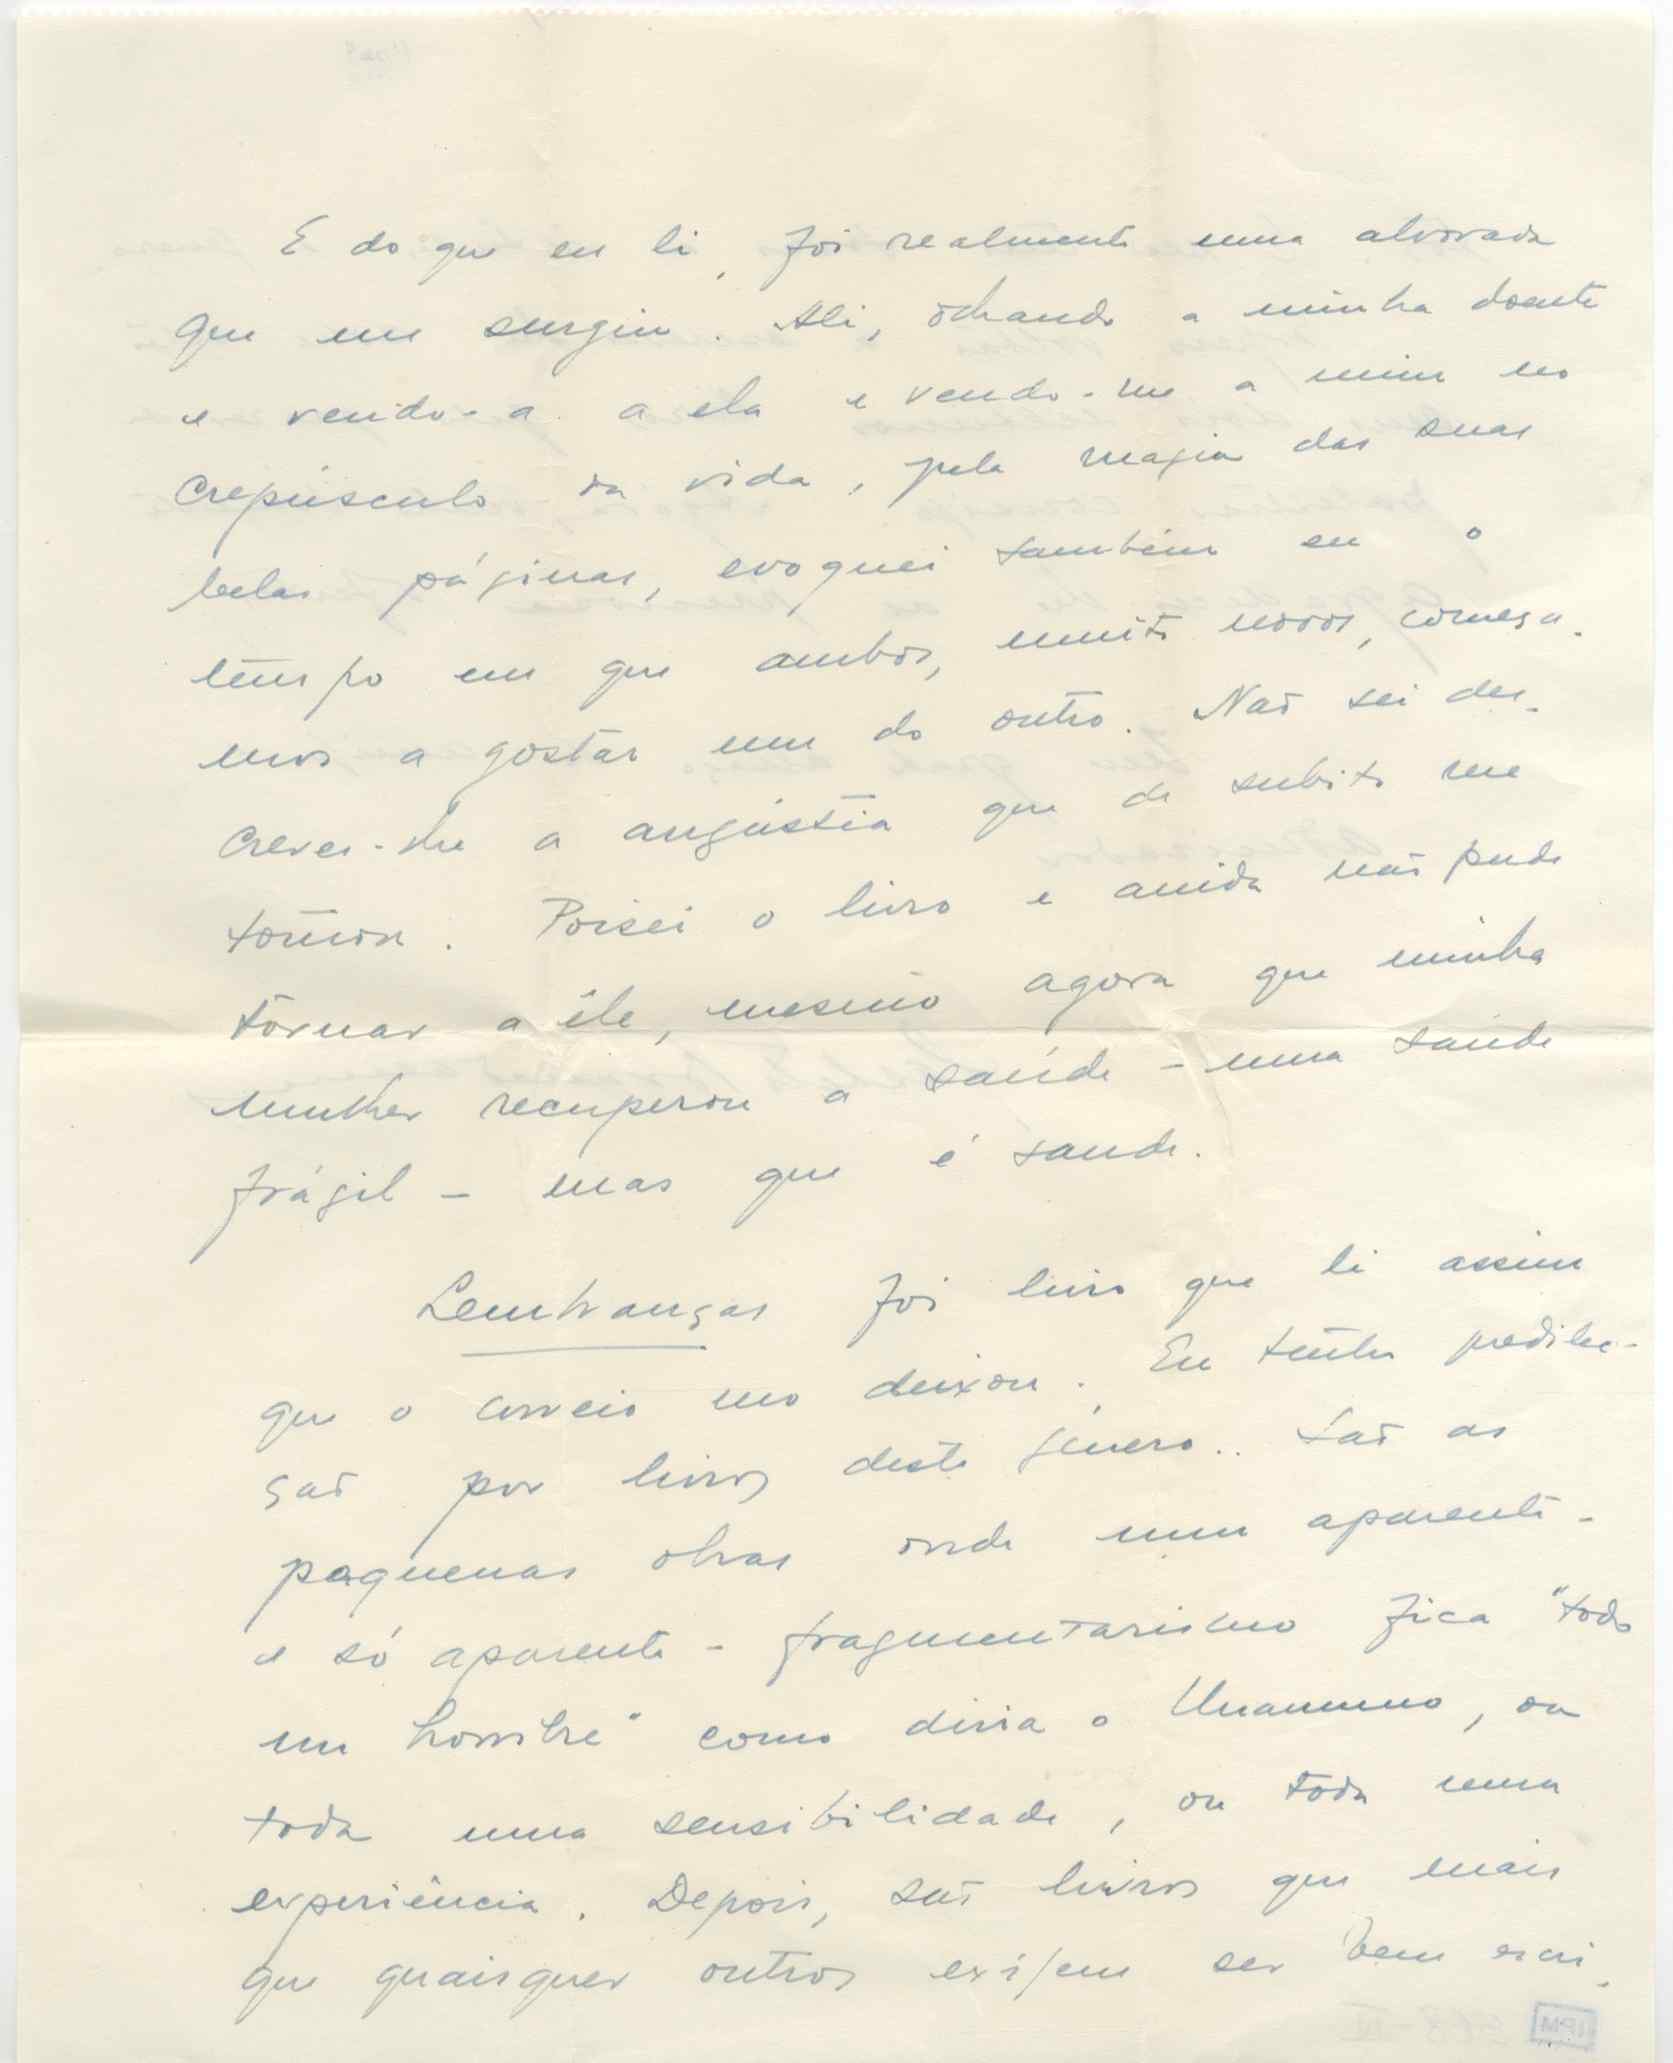 E do que eu li, foi realmente uma alvorada
que me surgiu. Ali, olhando a minha doente
e vendo-a a ela e vendo-me a mim no
crepúsculo da vida, pela magia das suas
belas páginas, evoquei também eu o
tempo em que ambos, muito novos, começá-
mos a gostar um do outro. Não sei des-
crever-lhe a angústia que de subito me
tomou. Poisei o livro e ainda não pude
tornar a êle, mesmo agora que minha
mulher recuperou a saúde – uma saúde
frágil – mas que é saude.
Lembranças foi livro que li assim
que o correio mo deixou. Eu tenho predilec-
ção por livros deste género.. São as
pequenas obras onde num aparente -
e só aparente - fragmentarismo fica "todo
un hombre" como diria o Unamuno, ou
toda uma sensibilidade, ou toda uma
experiência. Depois, são livros que mais
que quaisquer outros exijem ser bem escri-